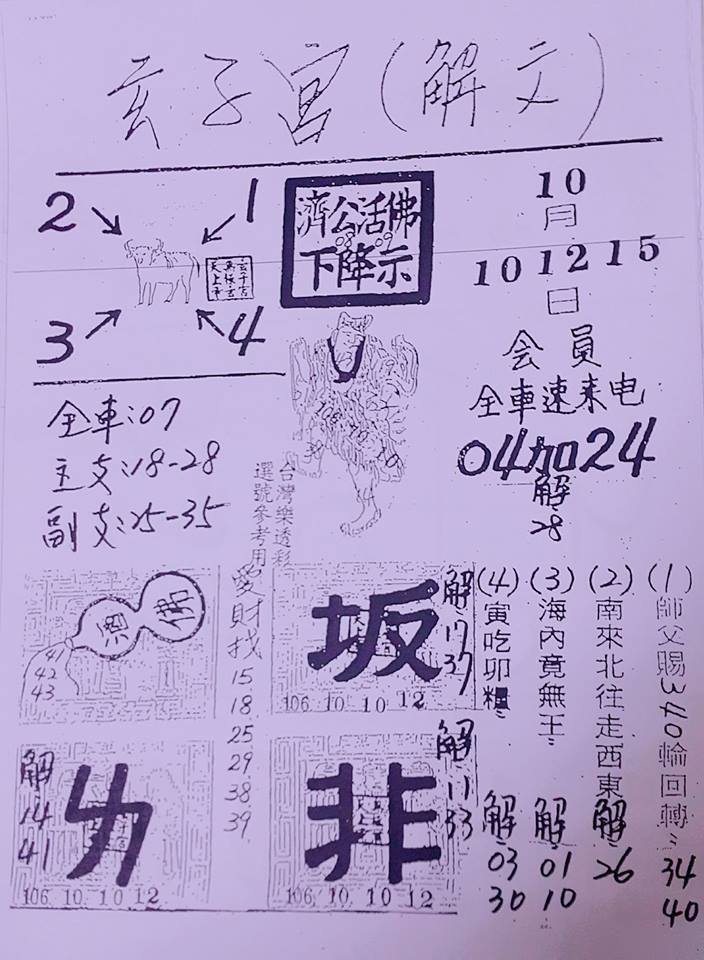 玄子宮(解文)
2
1
3
4
濟公活佛
下降示
10
月
10 12 15
日
会員
全車速来电
04加24
解
28
全車:07
主支:18-28
副支:25-35
台灣樂透彩
選號參考用
佛
酒
41
42
43
愛財找
15
18
25
29
38
39
坂
106 10 10 12
解
17
37
解
14
41
106 10 10 12
非
106 10 10 12
解
11
33
(1)師父賜340輪回轉
34
40
(2)南來北往走西東
解
26
(3)海內竟無王
解
01
10
(4)寅吃卯糧
解
03
30